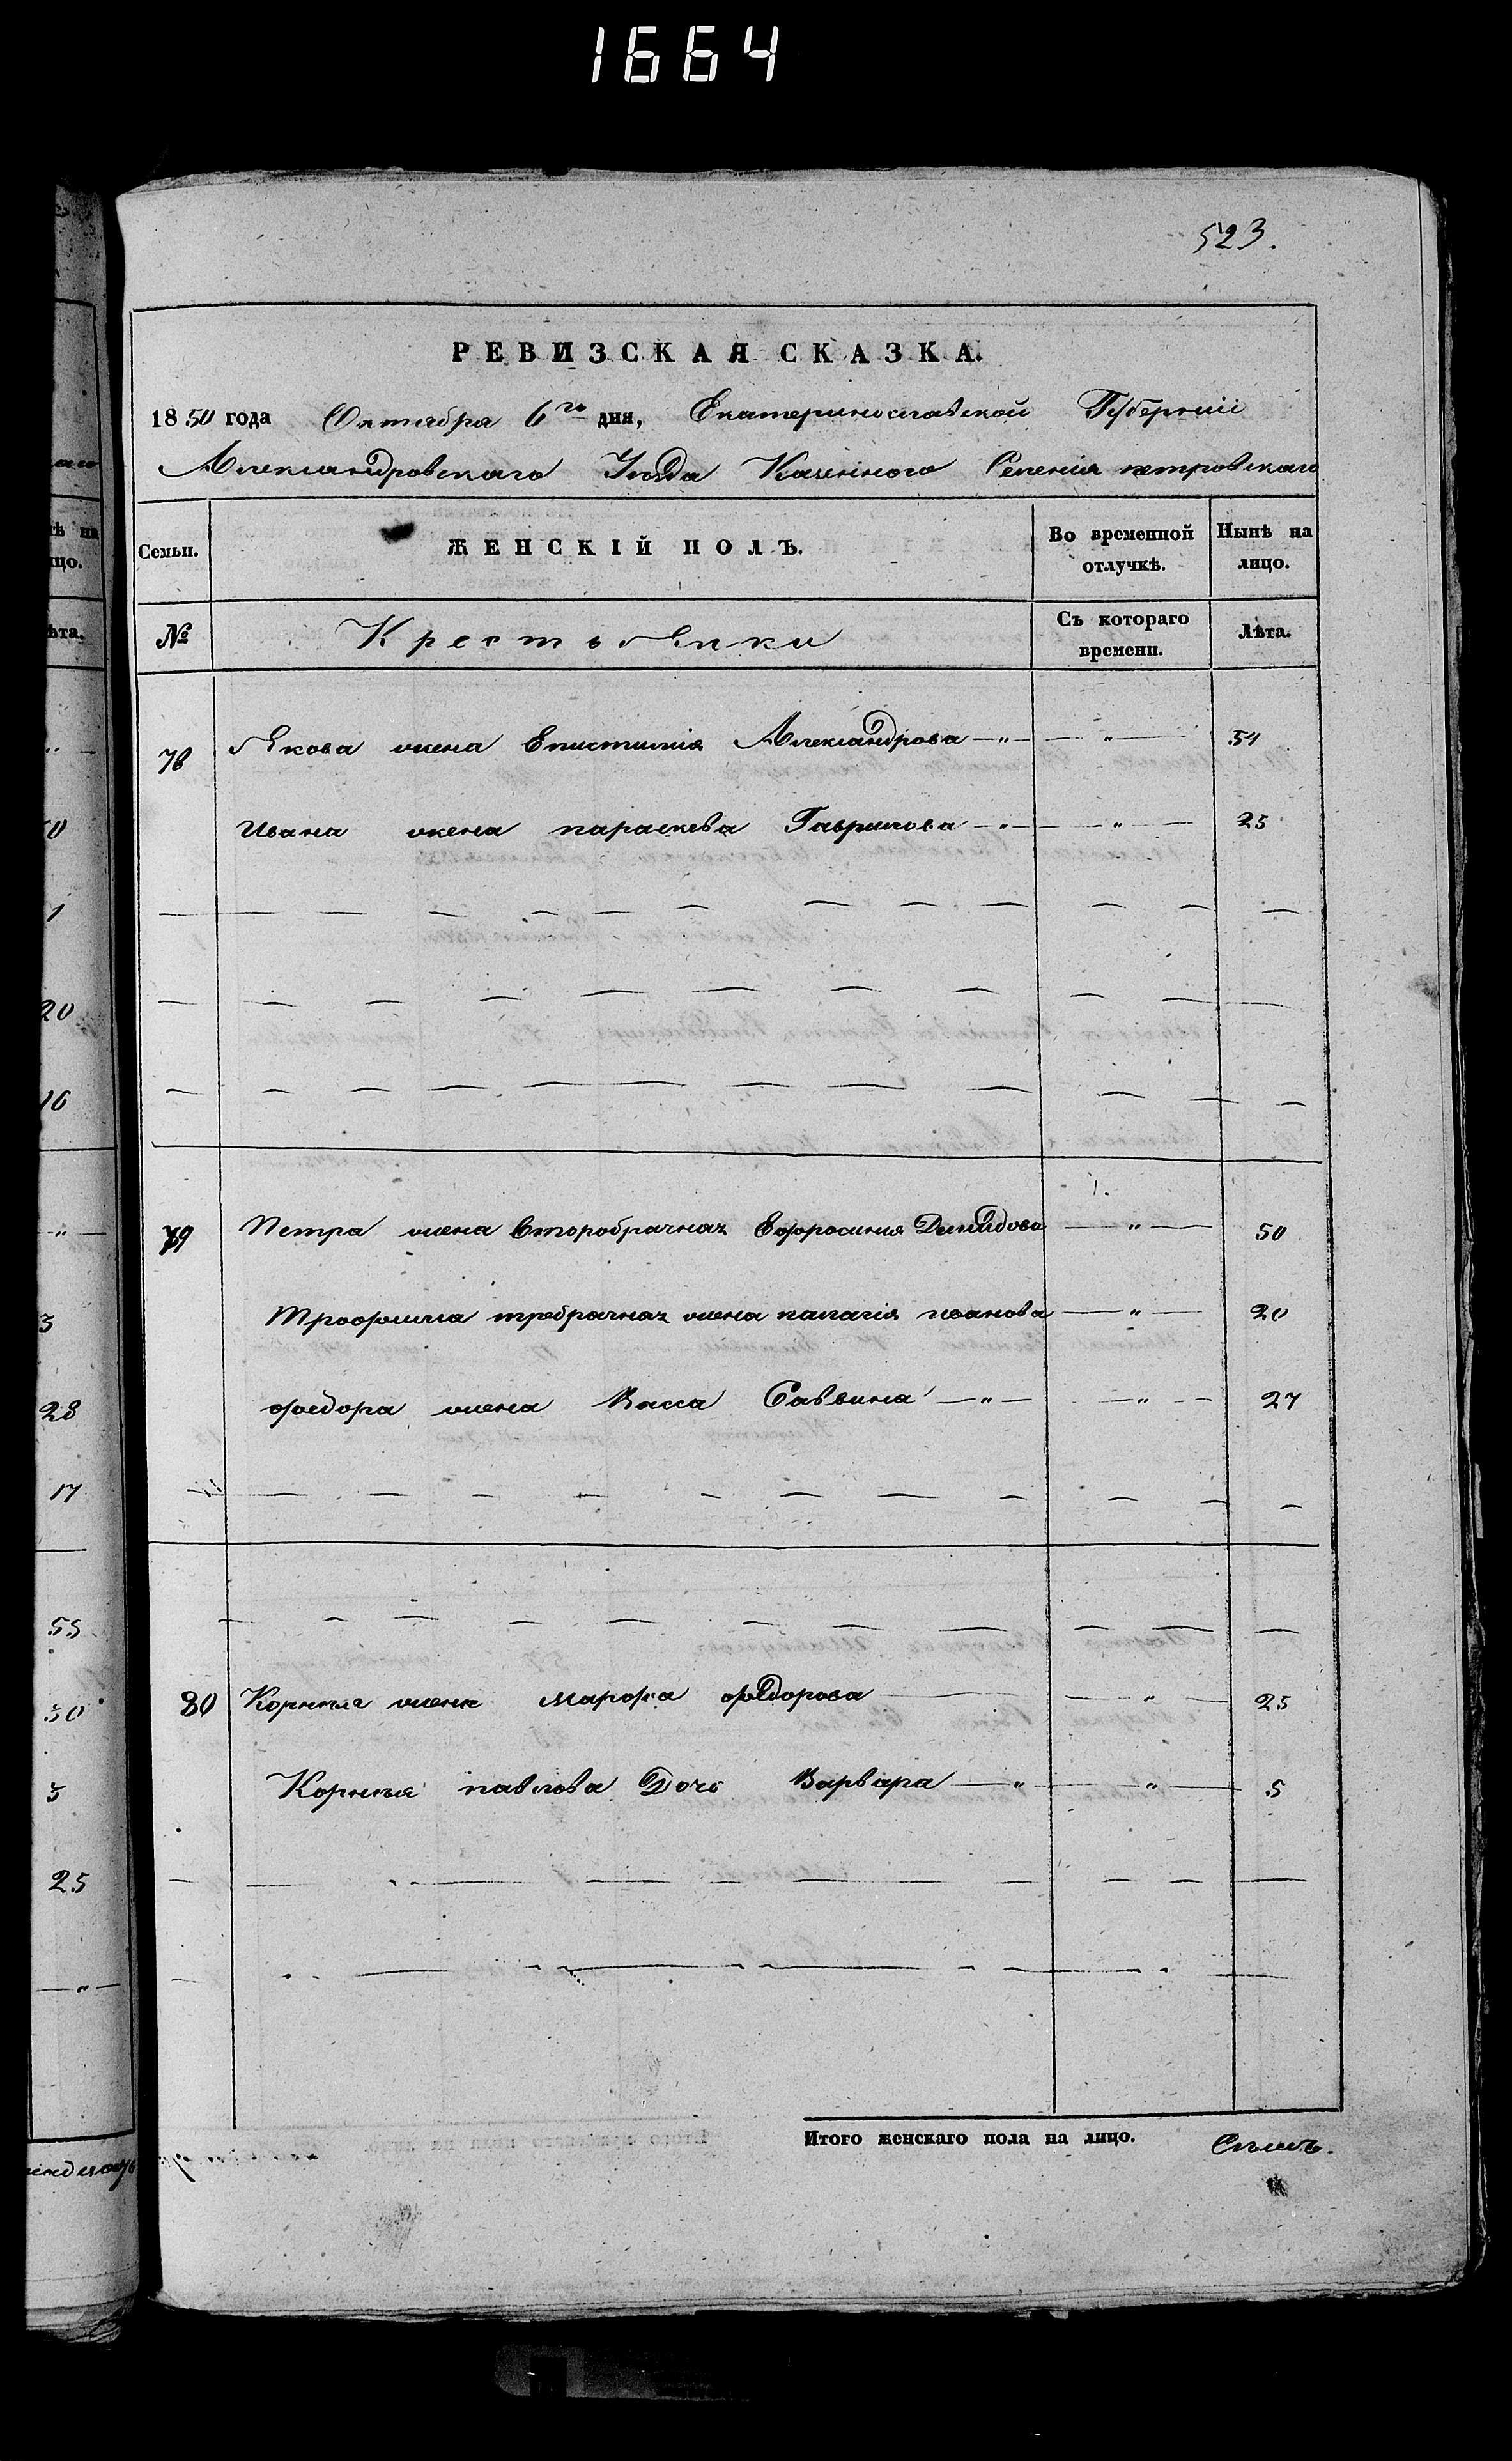 1664
523.
РЕВИЗСКАЯ СКАЗКА.
1850 года Октября 6го дня, Екатеринославской Губерніи
Александровскаго Уезда Казенного Селенія петровскаго
Семьи. ЖЕНСКІЙ ПОЛЪ. Во временной отлучкѣ. Нынѣ на лицо.
№ Крестьянки Съ котораго времени. Лѣта.
78 Якова жена Епистимія Александрова — " — — " — 54
Ивана жена параскева Гаврилова — " — — " — 25
79 Петра жена Вторробрачная Ефросиния Демидова — " — 50
Трофима требрачная жена палагія иванова — " — 20
федора жена Васса Саввина — " — — " — 27
80 Корнея жена марфа федорова — — " — 25
Корнея павлова Дочь Варвара — " — — " — 5
Итого женскаго пола на лицо. Съмь.
тѣ на
ицо.
ѣта.
1
20
16
— " —
3
28
17
55
50
3
25
— " —